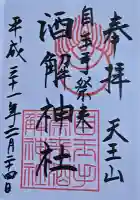 奉拝
天王山
自玉手祭来
酒解神社
平成二十一年二月二十四日